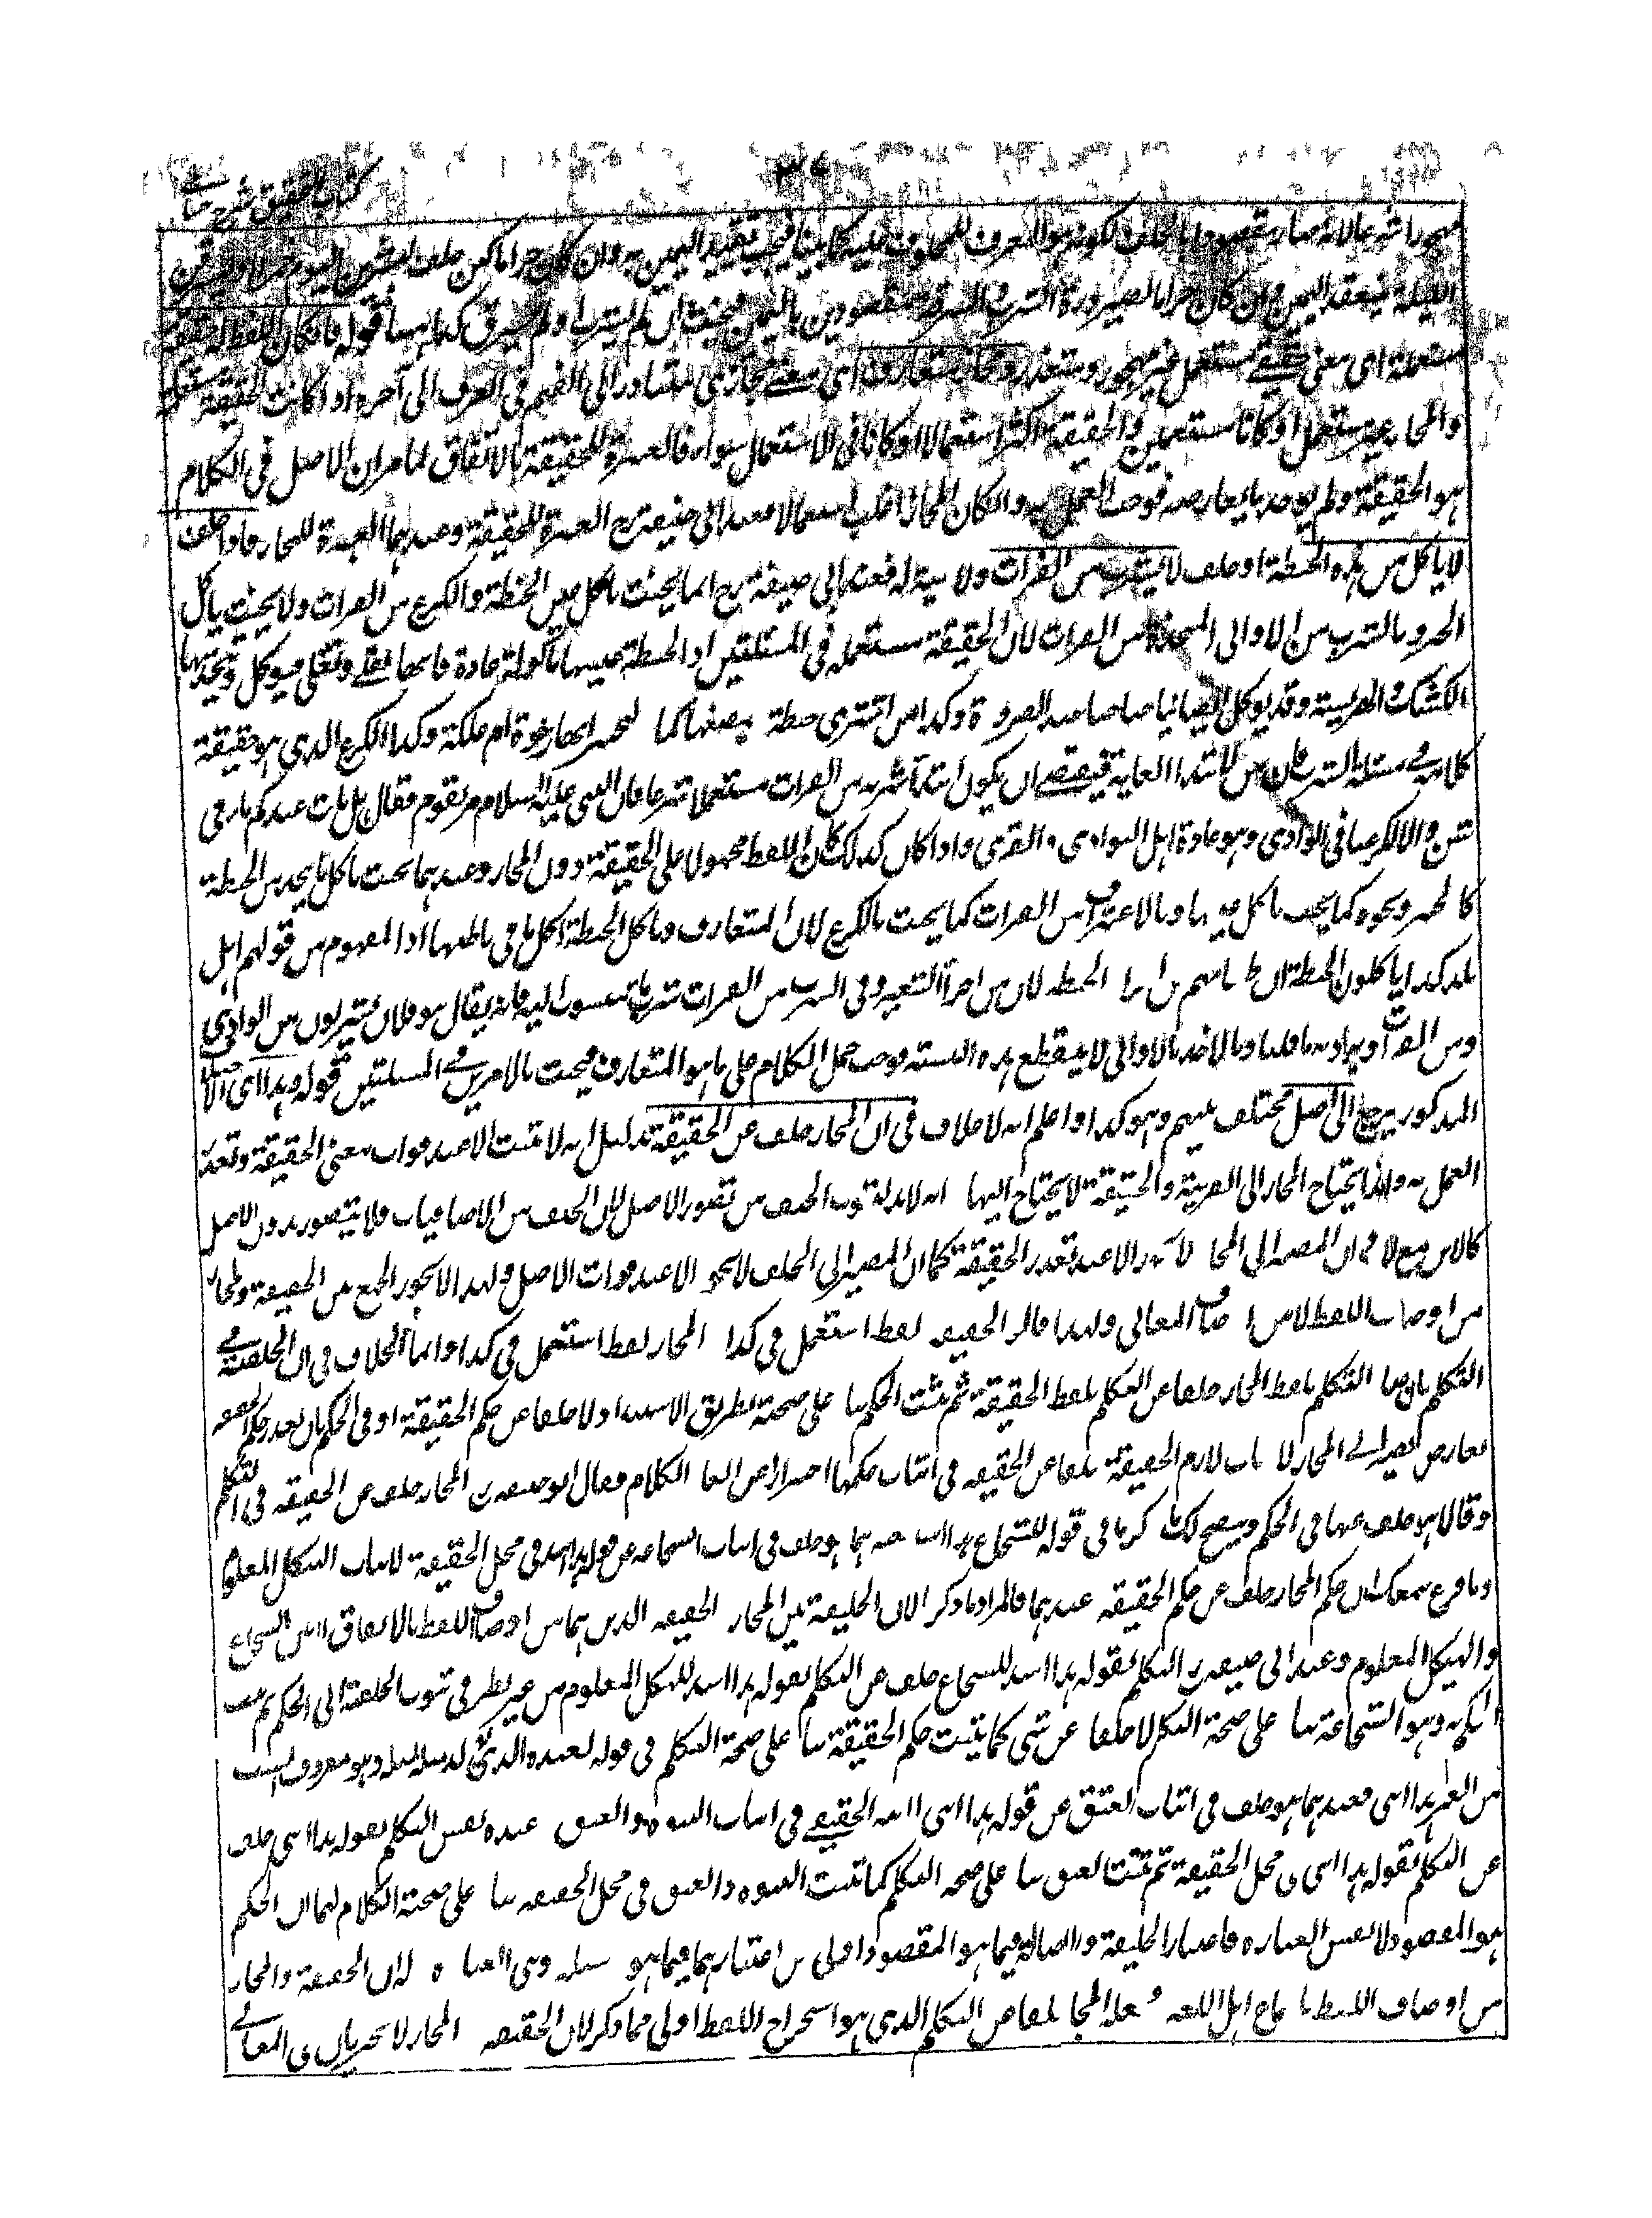 كتاب التحقيق شرح حسامي
مهجورا شرعا لانه صار مقصودا بالحلف لكونه هو المعرف للمحلوف عليه كما بينا فيجب تقييد اليمين به وان كان حراما كمن حلف ليشربن اليوم خمرا او ليسرقن
الليلة فينعقد اليمين وان كان حراما لصيرورة الشرب والسرقة مقصودين باليمين فيحنث ان لم يشرب او لم يسرق كذا ههنا قوله فان كان اللفظ له حقيقة
مستعملة اي معنى حقيقي مستعمل غير مهجور ومتعذر ومجاز متعارف اي معنى مجازي متبادر الى الفهم في العرف الى آخره اذا كانت الحقيقة مستعملة
والمجاز غير مستعمل او كانا مستعملين والحقيقة اكثر استعمالا او كانا في الاستعمال سواء فالعبرة للحقيقة بالاتفاق لما مر ان الاصل في الكلام
هو الحقيقة ولم يوجد ما يعارضه فوجب العمل به وان كان المجاز اغلب استعمالا فعند ابي حنيفة رح العبرة للحقيقة وعندهما العبرة للمجاز فاذا حلف
لا ياكل من هذه الحنطة او حلف لا يشرب من الفرات ولا نية له فعند ابي حنيفة رح انما يحنث باكل عين الحنطة والكرع من الفرات ولا يحنث باكل
الخبز وبالشرب من الاواني المتخذة من الفرات لان الحقيقة مستعملة في المسئلتين اذ الحنطة عينها ماكولة عادة فانها تقلى وتغلى فيوكل ويتخذ منها
الكشك والهريسة وقد يوكل ايضا نيا عند الضرورة وكذا من اشترى حنطة وكذا الكرع الذي هو حقيقة
كلامه في مسئلة الشرب فان من لابتداء الغاية فيقتضي ان يكون ابتداء شربه من الفرات مستعملا شرعا فان النبي عليه السلام مر بقوم فقال هل بات عندكم ماء في
شن والا كرعنا في الوادي وهو عادة اهل البوادي والقرى واذا كان كذلك كان اللفظ محمولا على الحقيقة دون المجاز وعندهما يحنث باكل ما يتخذ من الحنطة
كالخبز ونحوه كما يحنث باكل عينها وبالاغتراف من الفرات كما يحنث بالكرع لان المتعارف وباكل الحنطة اكل ما في باطنها اذ المفهوم من قولهم اهل
بلد كذا ياكلون الحنطة الحنطة لا من اجزاء الشعير وفي الشرب من الفرات شرب ما منسوب اليه فانه يقال بنو فلان يشربون من الوادي
ومن الفرات ويراد به ما قلنا وبالاخذ بالاواني لا ينقطع هذه النسبة فوجب حمل الكلام على ما هو المتعارف فيحنث بالامرين في المسئلتين قوله وهذا اي الاختلاف
المذكور يرجع الى اصل مختلف بينهم وهو كذا واعلم انه لا خلاف في ان المجاز خلف عن الحقيقة بدليل انه لا يثبت الا عند فوات معنى الحقيقة وتعذر
العمل به ولهذا يحتاج المجاز الى القرينة والحقيقة لا يحتاج اليها انه لا بد لثبوت الخلف من تصور الاصل لان الخلف من الاضافيات فلا يتصور بدون الاصل
كالابن مع الاب في ان المصير الى المجاز لا يجوز الا عند تعذر الحقيقة كما ان المصير الى الخلف لا يجوز الا عند فوات الاصل ولهذا لا يجوز الجمع بين الحقيقة والمجاز
من اوصاف اللفظ لا من اوصاف المعاني ولهذا قالوا الحقيقة لفظ استعمل في كذا المجاز لفظ استعمل في كذا وانما الخلاف في ان الخلفية في
التكلم بان صار التكلم بلفظ المجاز خلفا عن التكلم بلفظ الحقيقة ثم يثبت الحكم بناء على صحته بطريق الاستبداد لا خلفا عن حكم الحقيقة او في الحكم بان تعذر حكم الحقيقة
لعارض فيصير الى المجاز لاثبات لازم الحقيقة خلفا عن الحقيقة في اثبات حكمها احترازا عن الغاء الكلام فقال ابو حنيفة رح المجاز خلف عن الحقيقة في التكلم
وقالا هو خلف عنها في الحكم ويتضح لك ما ذكرنا في قوله للشجاع هذا اسد عندهما هو خلف في اثبات الشجاعة عن قوله هذا اسد في محل الحقيقة لاثبات الهيكل المعلوم
وما قرع سمعك ان حكم المجاز خلف عن حكم الحقيقة عندهما فالمراد ما ذكر الا ان الخليفة بين المجاز الحقيقة الذين هما من اوصاف اللفظ بالاتفاق لا بين الشجاع
والهيكل المعلوم وعند ابي حنيفة رح التكلم بقوله هذا اسد للشجاع خلف عن التكلم بقوله هذا اسد للهيكل المعلوم من غير نظر في ثبوت الخلفية الى الحكم ثم يثبت
الحكم به وهو الشجاعة بناء على صحة التكلم لا خلفا عن شيء كما يثبت حكم الحقيقة بناء على صحة التكلم في قوله لعبده والذي يولد مثله لمثله وهو معروف النسب
من الغير هذا ابني فعندهما هو خلف في اثبات العتق عن قوله هذا ابني لابنه الحقيقي في اثبات البنوة والعتق عنده نفس التكلم بقوله هذا ابني خلف
عن التكلم بقوله هذا ابني في محل الحقيقة ثم يثبت العتق بناء على صحة التكلم كما تثبت البنوة والعتق في محل الحقيقة بناء على صحة الكلام لهما ان الحكم
هو المقصود لا نفس العبارة فاعتبار الخليفة والاصالة فيما هو المقصود اولى من اعتبارهما فيما هو وسيلة وهي العبارة له ان الحقيقة والمجاز
من اوصاف اللفظ باجماع اهل اللغة فجعل المجاز خلفا عن التكلم الذي هو استخراج اللفظ اولى مما ذكر لان الحقيقة المجاز لا يجريان في المعاني